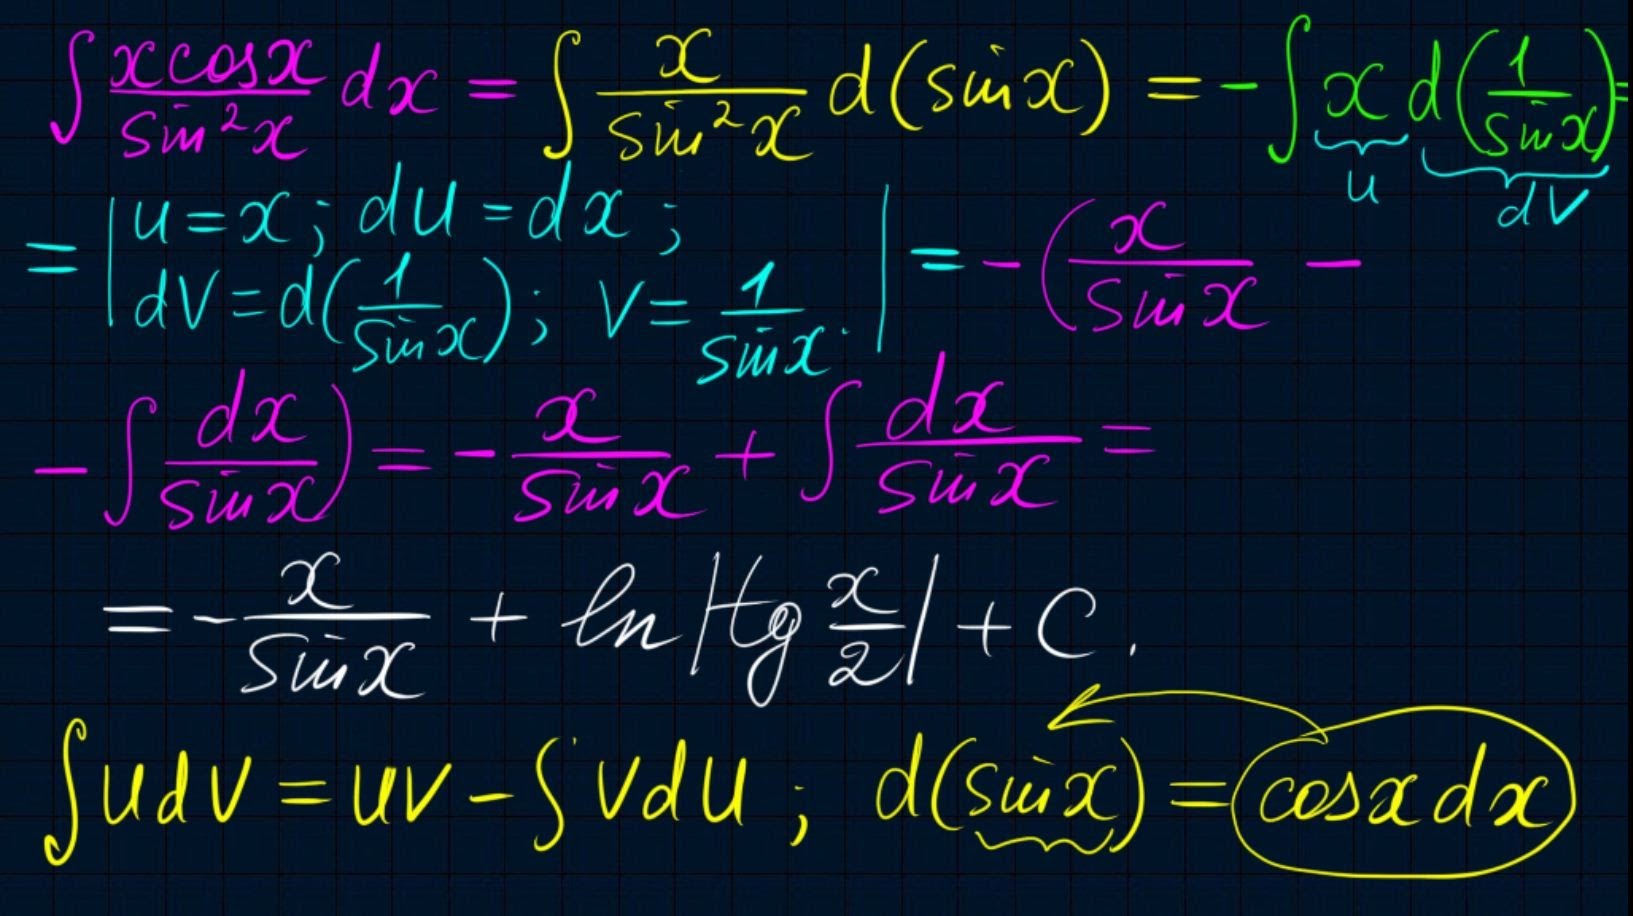 ∫ (x cos x)/(sin² x) dx = ∫ x/(sin² x) d(sin x) = - ∫ x d(1/(sin x)) =
u dV
= | u = x; du = dx; dV = d(1/(sin x)); V = 1/(sin x). | = - ( x/(sin x) -
- ∫ dx/(sin x) ) = - x/(sin x) + ∫ dx/(sin x) =
= - x/(sin x) + ln |tg x/2| + C.
∫ u dV = uV - ∫ V du; d(sin x) = cos x dx